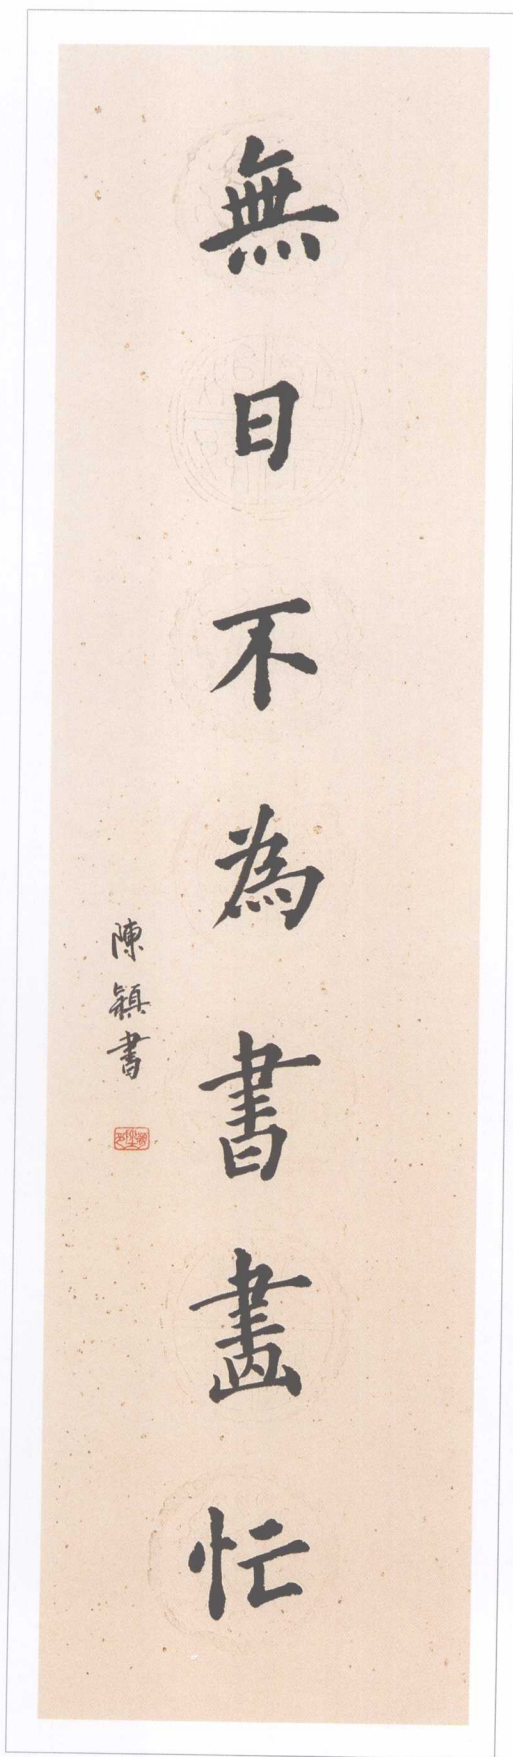 無日不為書畫忙
陳穎書